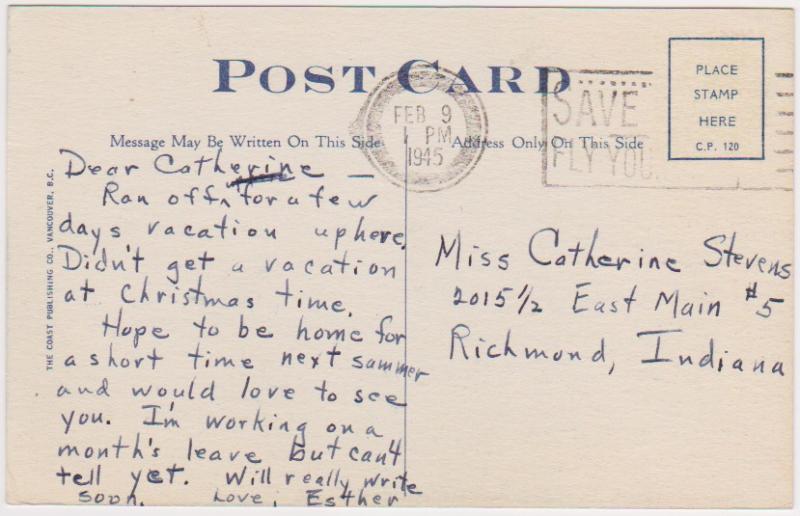 POST CARD
PLACE
STAMP
HERE
C.P. 120
FEB 9
1 PM
1945
SAVE
FLY YOU
Message May Be Written On This Side
Address Only On This Side
THE COAST PUBLISHING CO., VANCOUVER, B.C.
Dear Catherine —
Ran off for a few
days vacation up here.
Didn't get a vacation
at Christmas time.
Hope to be home for
a short time next summer
and would love to see
you. I'm working on a
month's leave but can't
tell yet. Will really write
soon. Love, Esther
Miss Catherine Stevens
2015 1/2 East Main #5
Richmond, Indiana